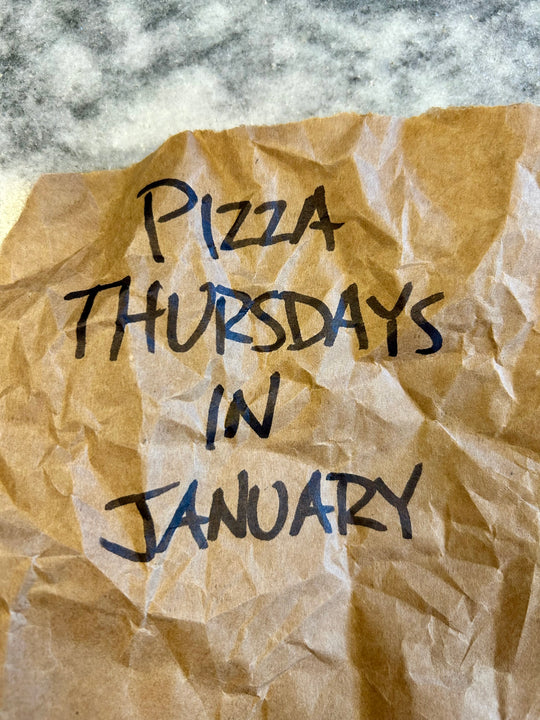 PIZZA
THURSDAYS
IN
JANUARY